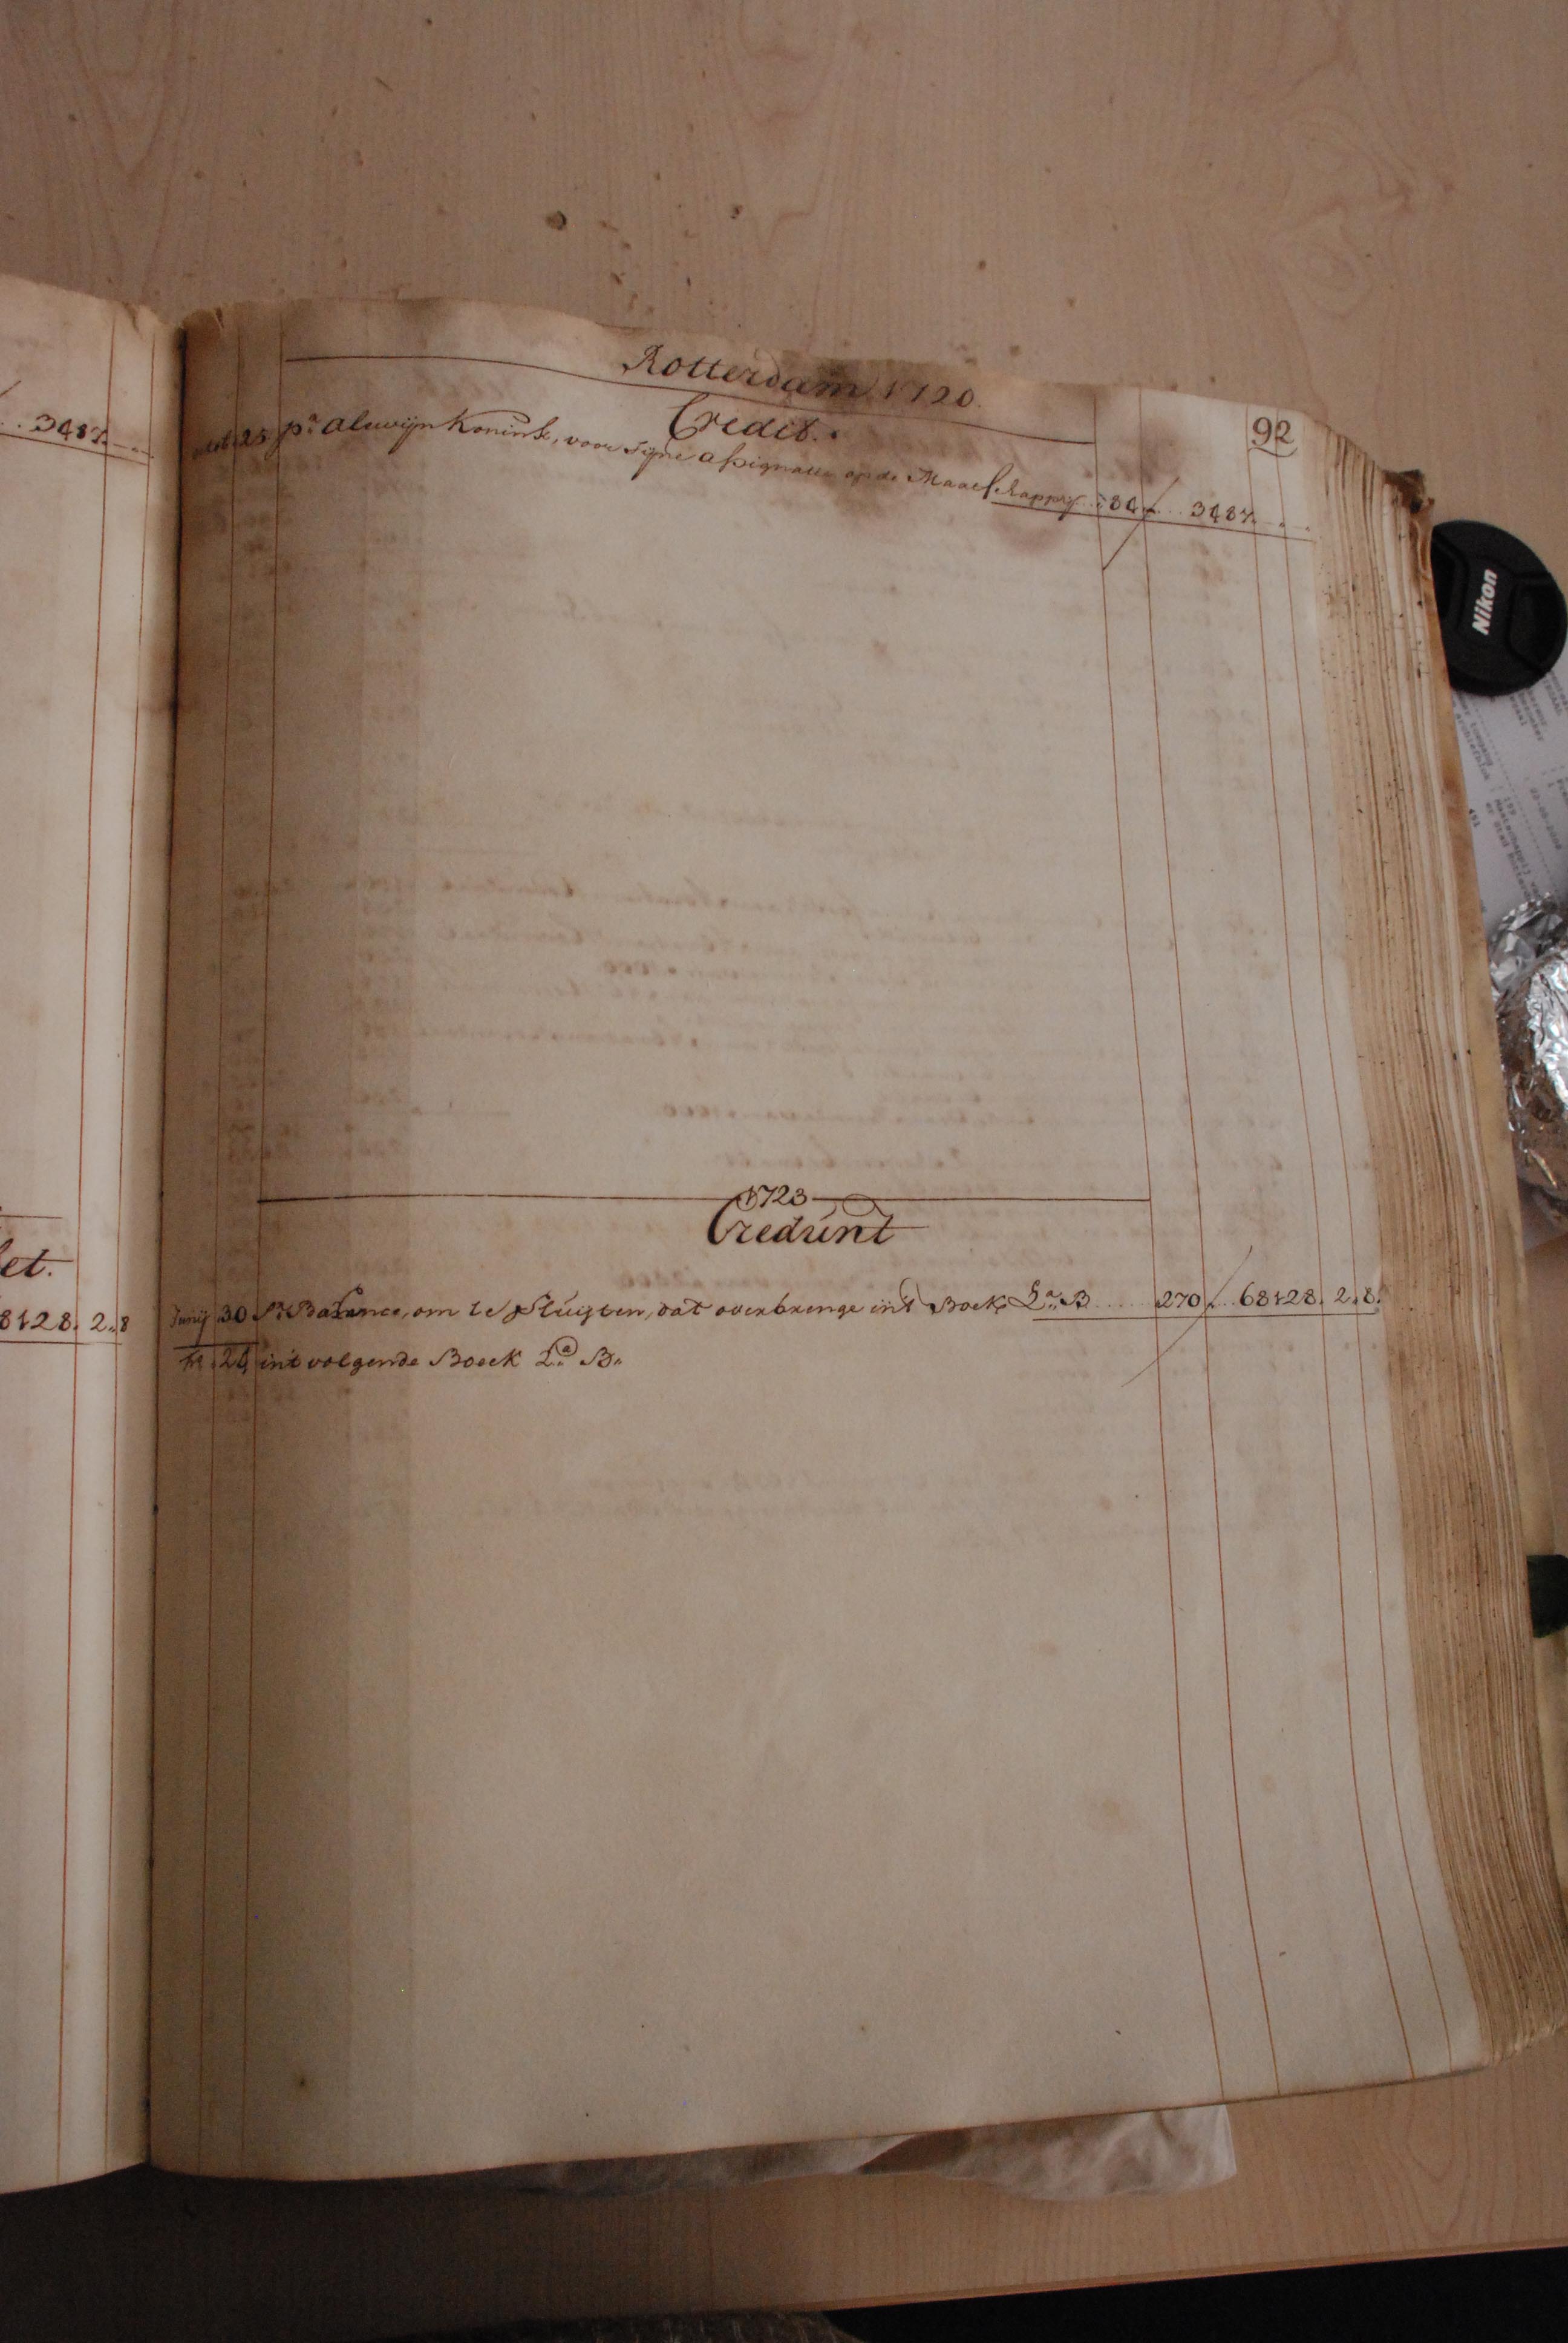 3487
Rotterdam 1720.
Credit.
92
25 pr. Alewijn Konink, voor sijne assignatie op de Maatschappy 84 3487
et.
8128. 2.8
1723
Credunt
Junij 30 Pr Balance, om te Sluijten, dat overbrenge in't Boek La. B 270 68128. 2.8.
24 in't volgende Boeck La. B.
Nikon